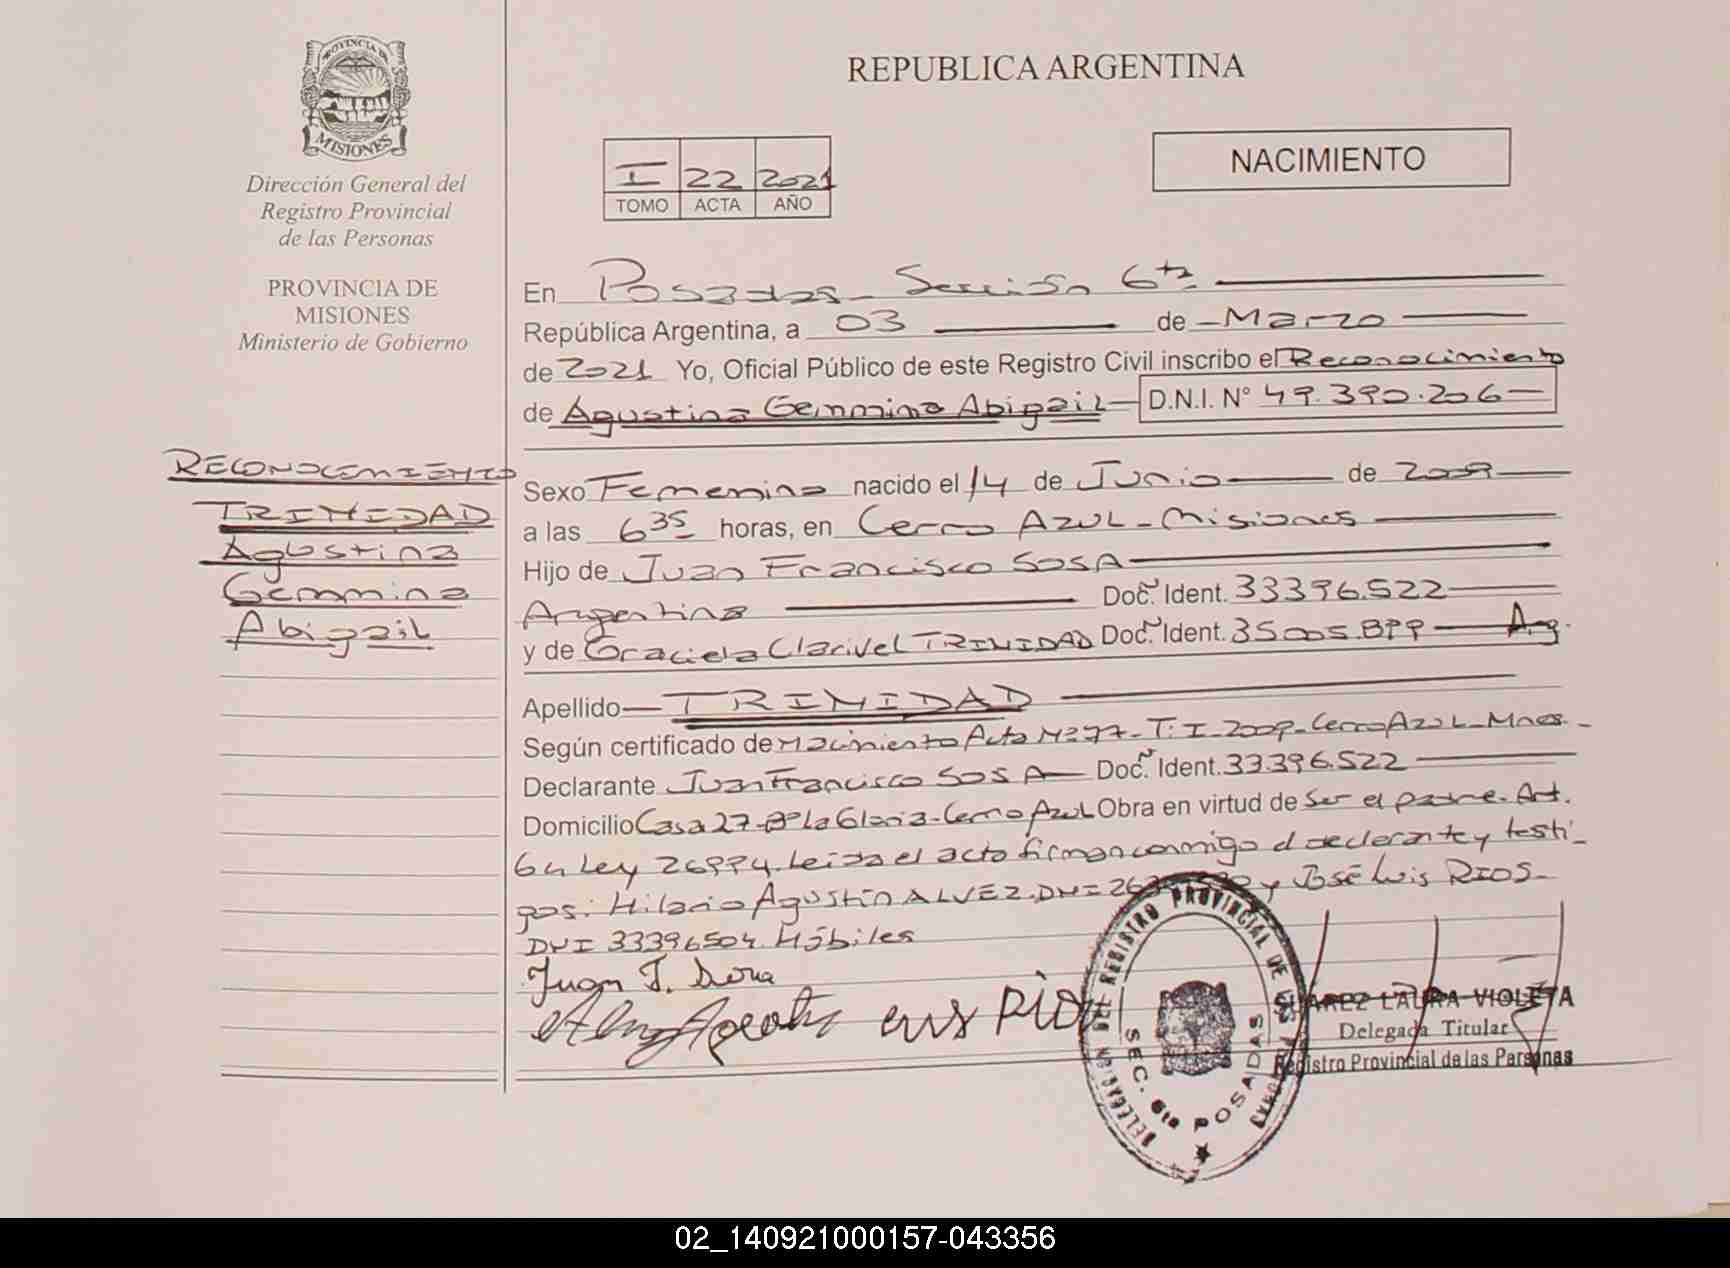 PROVINCIA DE
MISIONES
Dirección General del
Registro Provincial
de las Personas
PROVINCIA DE
MISIONES
Ministerio de Gobierno
RECONOCIMIENTO
TRINIDAD
Agustina
Gemmina
Abigail
REPUBLICA ARGENTINA
I 22 2021
TOMO ACTA AÑO
NACIMIENTO
En Posadas - Sección 6ta
República Argentina, a 03 de - Marzo
de 2021 Yo, Oficial Público de este Registro Civil inscribo el Reconocimiento
de Agustina Gemmina Abigail - D.N.I. N° 49.390.206 -
Sexo Femenino nacido el 14 de Junio de 2009
a las 6 35 horas, en Cerro Azul - Misiones
Hijo de Juan Francisco SOSA
Argentina Doc. Ident. 33396.522
y de Graciela Clarivel TRINIDAD Doc. Ident. 35005.899 Arg.
Apellido TRINIDAD
Según certificado de Nacimiento Acta Nº 77 - T: I - 2009 - Cerro Azul - Mnes -
Declarante Juan Francisco SOSA Doc. Ident. 33396.522
Domicilio Casa 27 - Bº La Gloria - Cerro Azul Obra en virtud de Ser el padre. Art.
64 Ley 26994. Leída el acta firman conmigo el declarante y testi-
gos: Hilario Agustín ALVEZ. DNI y José Luis RIOS -
DNI 33396504. Hábiles
Juan F. Sosa
RIO
DELEGACION DEL REGISTRO PROVINCIAL DE LAS PERSONAS
SEC. 6ta POSADAS
SUAREZ LAURA VIOLETA
Delegada Titular
Registro Provincial de las Personas
02_140921000157-043356